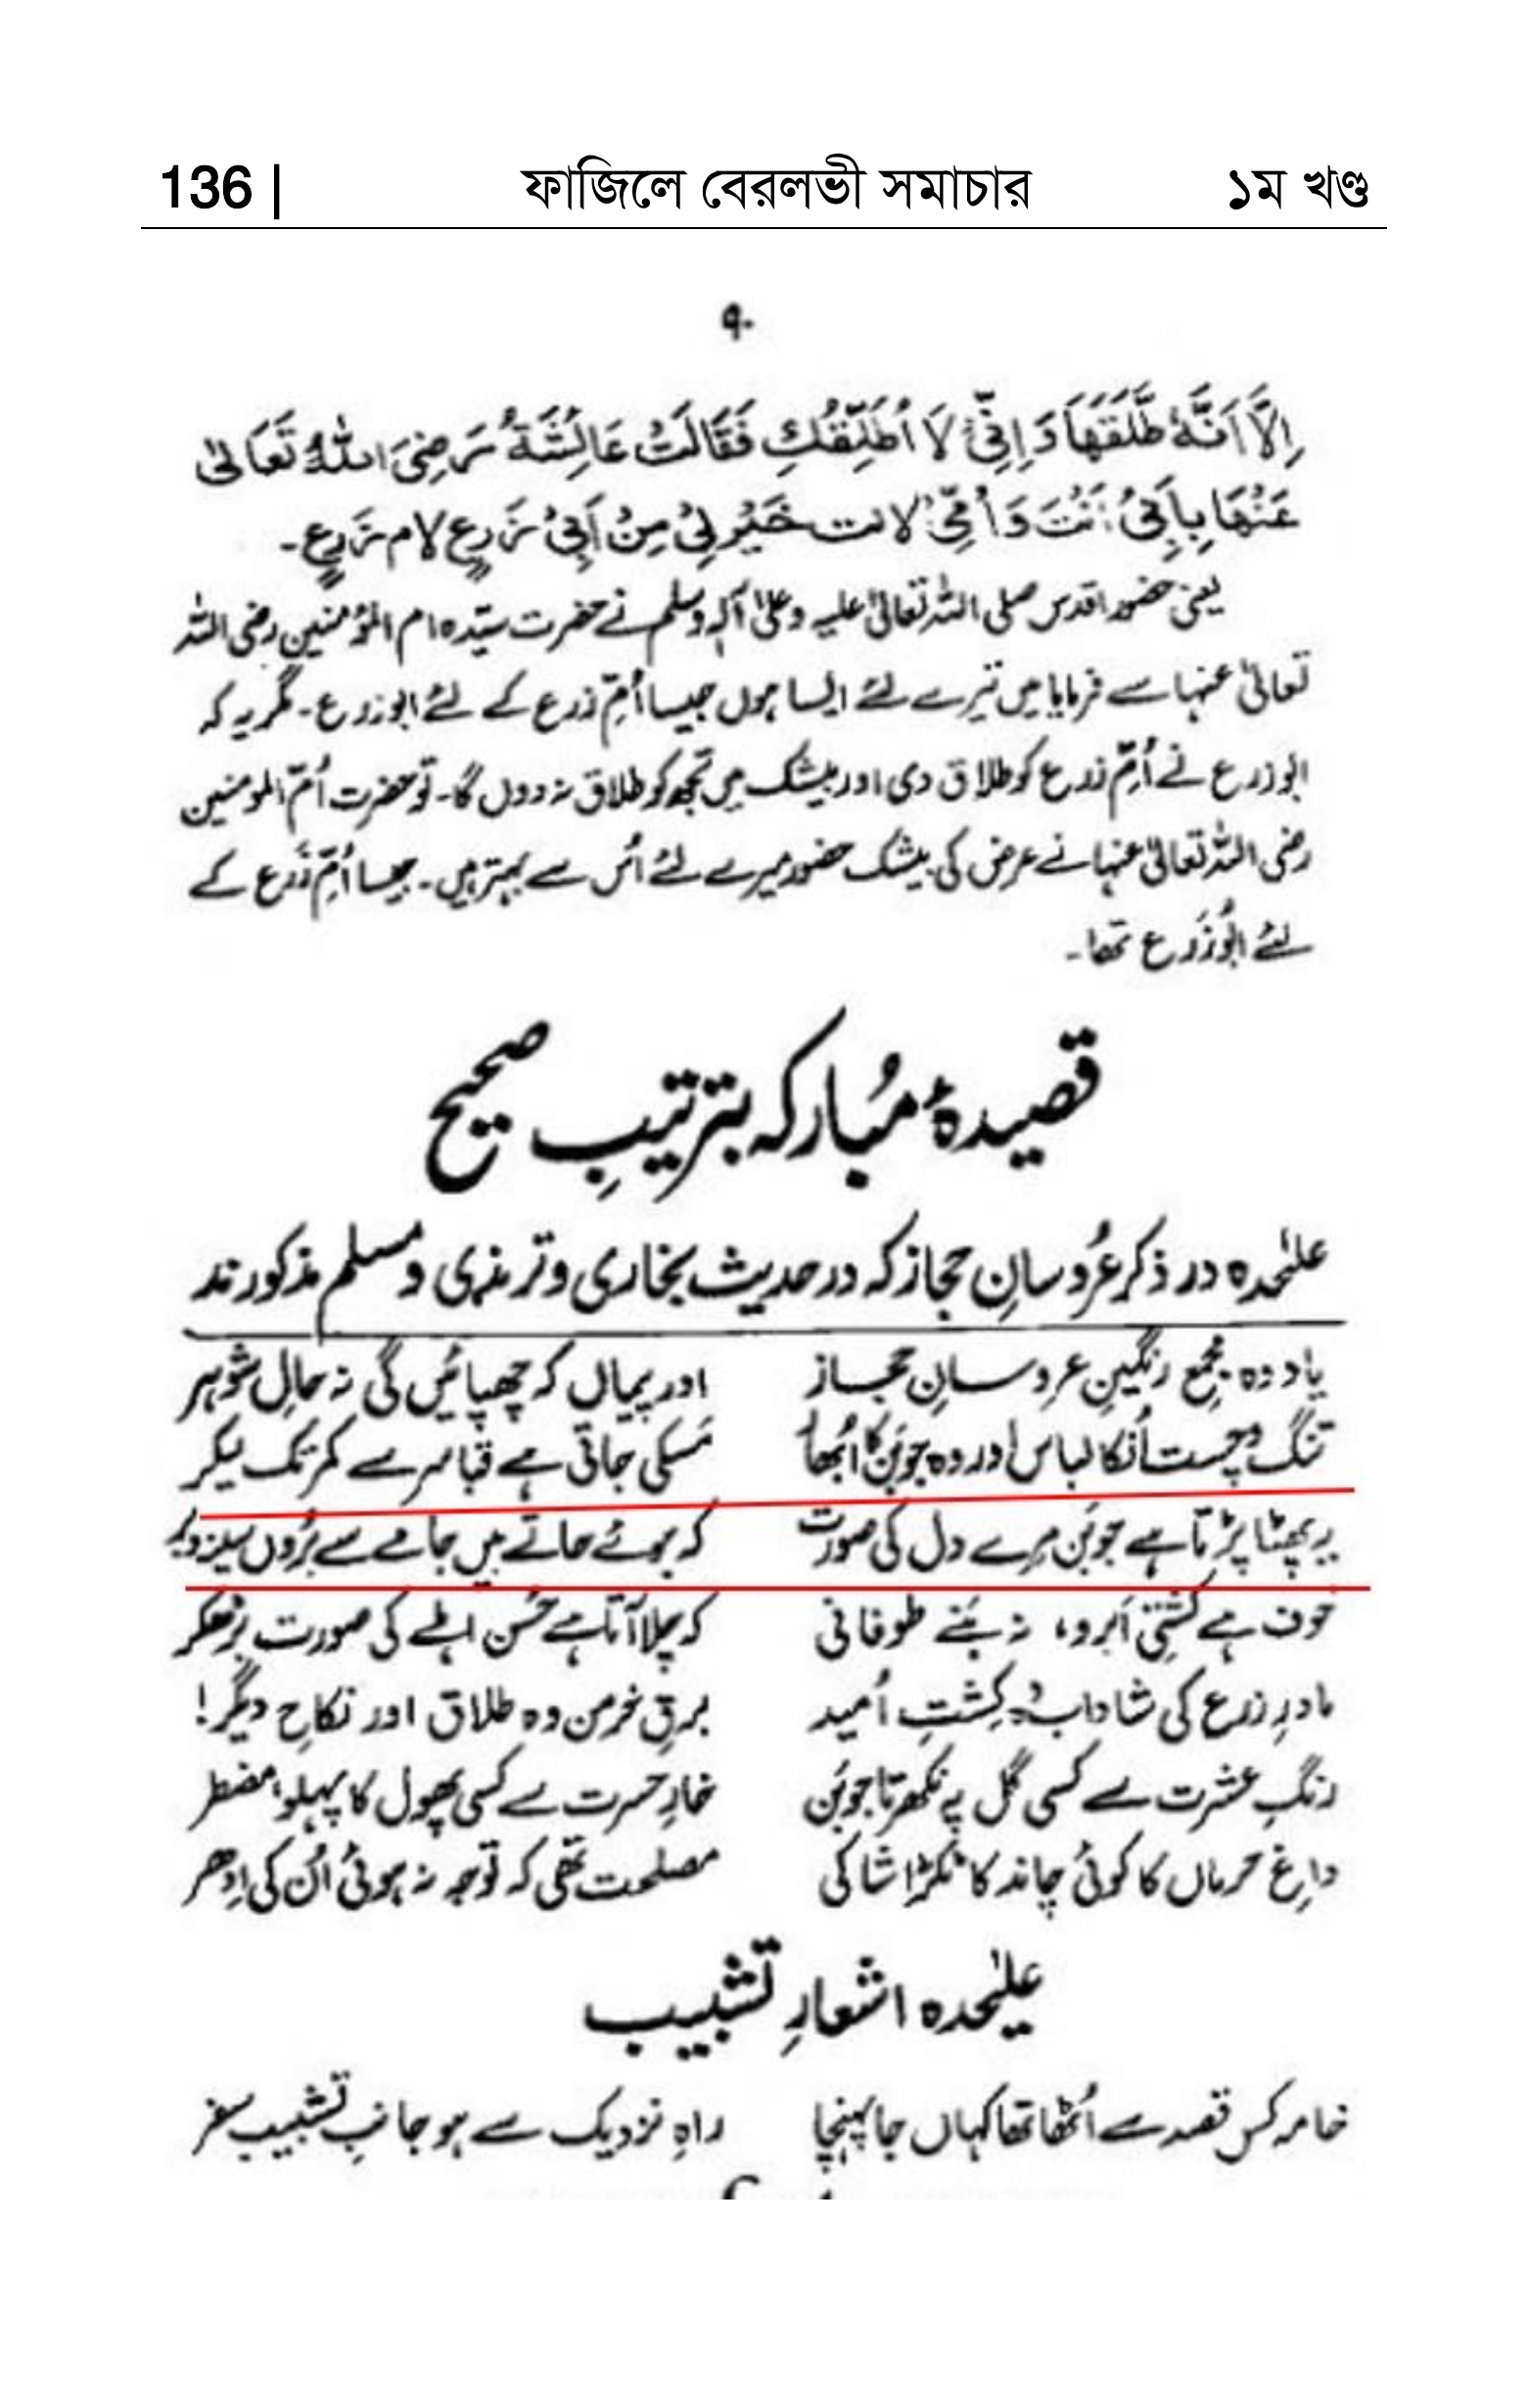 136 | ফাজিলে বেরলভী সমাচার ১ম খণ্ড
۹۰
اِلَّا اَنَّهٗ طَلَّقَهَا وَاِنِّیْ لَا اُطَلِّقُكِ فَقَالَتْ عَائِشَةُ رَضِیَ اللّٰهُ تَعَالٰی
عَنْهَا بِاَبِیْ اَنْتَ وَاُمِّیْ لانت خَیْرٌ لِیْ مِنْ اَبِیْ زَرعٍ لام زَرعٍ۔
یعنی حضور اقدس صلی اللہ تعالیٰ علیہ وعلیٰ آلہٖ وسلم نے حضرت سیّدہ ام المؤمنین رضی اللہ
تعالیٰ عنہا سے فرمایا میں تیرے لئے ایسا ہوں جیسا اُمِّ زرع کے لئے ابوزرع۔ مگر یہ کہ
ابوزرع نے اُمِّ زرع کو طلاق دی اور بیشک میں تجھ کو طلاق نہ دوں گا۔ تو حضرت اُمّ المومنین
رضی اللہ تعالیٰ عنہا نے عرض کی بیشک حضور میرے لئے اُس سے بہتر ہیں۔ جیسا اُمِّ زَرع کے
لئے ابُوزَرع تھا۔
قصیدۂ مُبارکہ بترتیبِ صحیح
علیٰحدہ در ذکر عُروسانِ حجاز کہ در حدیث بخاری وترمذی ومسلم مذکورند
یاد وہ مجمع رنگینِ عروسانِ حجاز اور پیماں کہ چھپائیں گی نہ حالِ شوہر
تنگ و چست اُنکا لباس اور وہ جوبَن کا اُبھار مَسکی جاتی ہے قبا سر سے کمر تک لیکر
یہ پھٹا پڑتا ہے جوبَن مِرے دل کی صورت کہ ہوئے جاتے ہیں جامے سے بُرُوں سینہ وبر
خوف ہے کشتیِ اَبرو نہ بنے طوفانی کہ چلا آتا ہے حُسن اہلے کی صورت بڑھکر
مادرِ زرع کی شاداب وہ کِشتِ اُمید برقِ خرمن وہ طلاق اور نکاحِ دیگر!
رنگِ عشرت سے کسی گل پہ نکھرتا جوبَن خارِ حسرت سے کسی پھول کا پہلو مضطر
داغِ حرماں کا کوئی چاند کا ٹکڑا شاکی مصلحت تھی کہ توجہ نہ ہوئی اُن کی اِدھر
علیٰحدہ اشعارِ تشبیب
خامہ کس قصد سے اُٹھا تھا کہاں جا پہنچا راہِ نزدیک سے ہو جانبِ تشبیب سفر